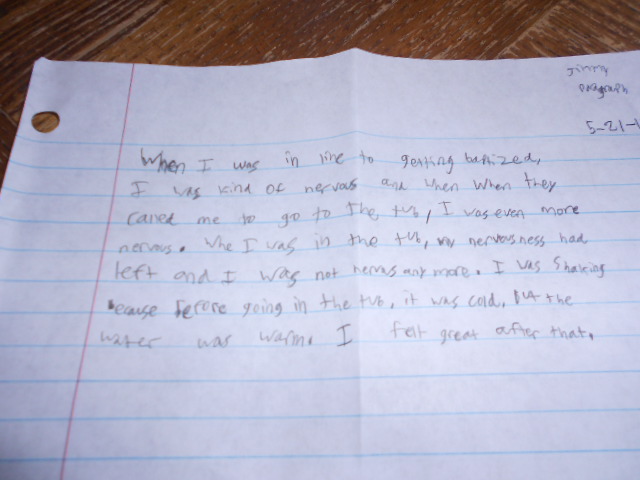 Jimmy
paragraph
5-21-1
When I was in line to getting baptized,
I was kind of nervous and when when they
called me to go to the tub, I was even more
nervous. Whe I was in the tub, my nervousness had
left and I was not nervous any more. I was shaking
because before going in the tub, it was cold, but the
water was warm. I felt great after that.